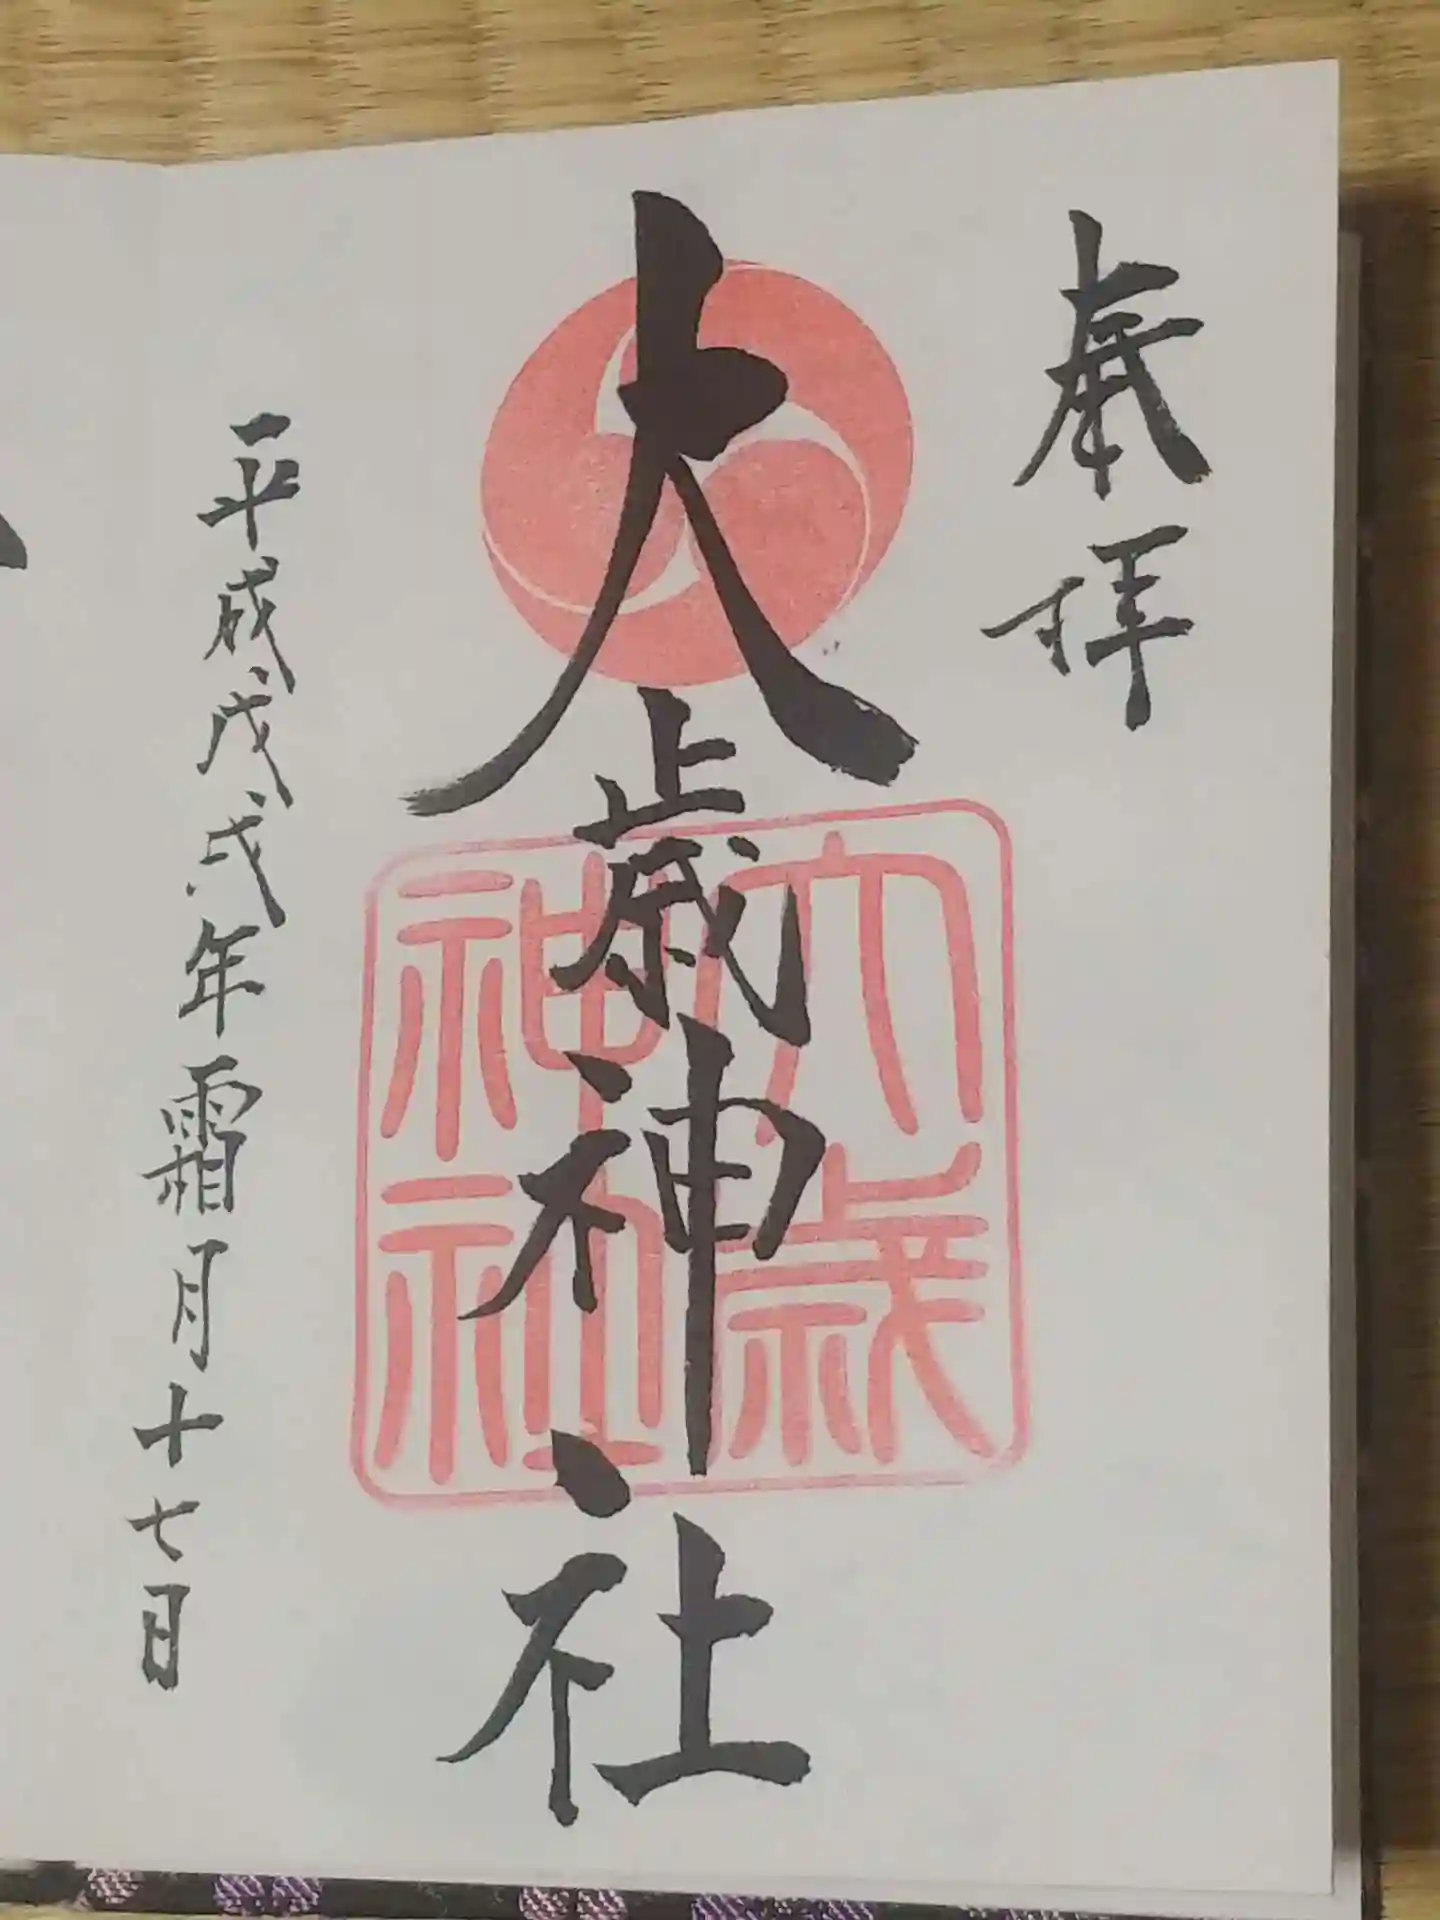 奉拝
大歳神社
大歳神社
平成戊戌年霜月十七日